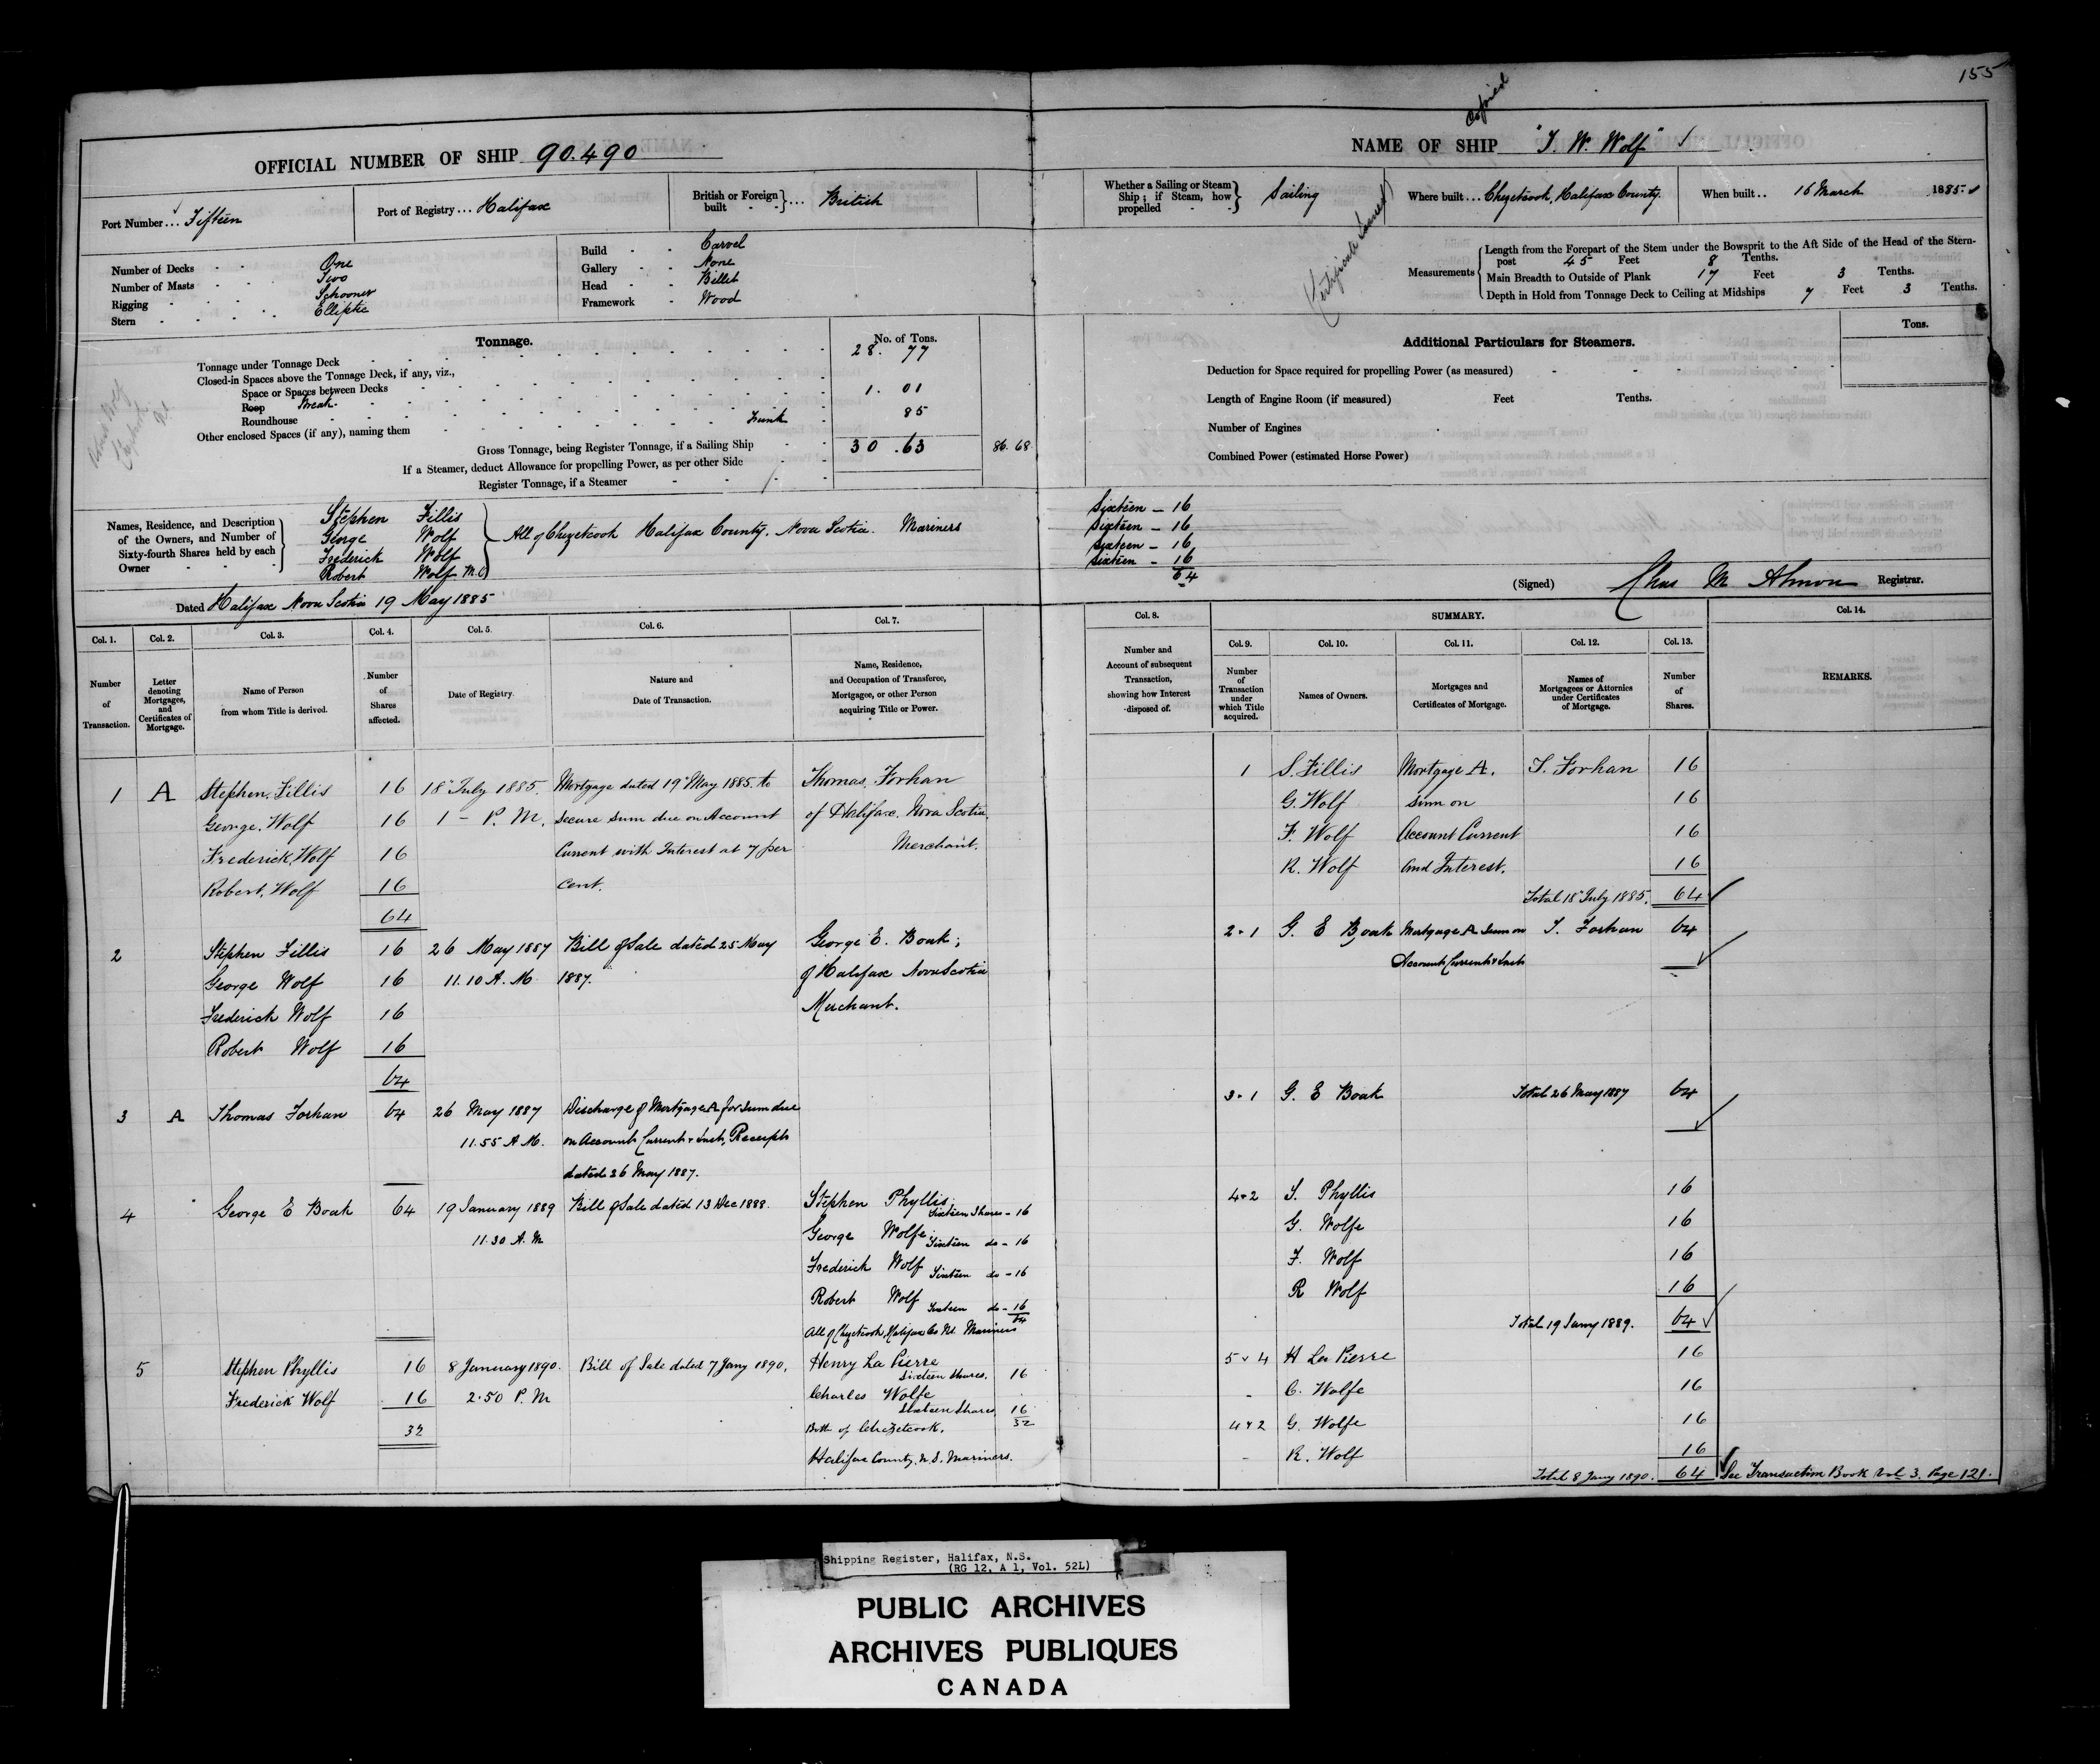 155
Copied
OFFICIAL NUMBER OF SHIP 90.490
NAME OF SHIP "T. W. Wolf"
Port Number... Fifteen
Port of Registry... Halifax
British or Foreign built ... British
Whether a Sailing or Steam Ship; if Steam, how propelled Sailing
Where built... Chezetcook, Halifax County.
When built.. 16 March 1885
Number of Decks One
Number of Masts Two
Rigging Schooner
Stern Elliptic
Build Carvel
Gallery None
Head Billet
Framework Wood
Measurements
Length from the Forepart of the Stem under the Bowsprit to the Aft Side of the Head of the Stern-
post 45 Feet 8 Tenths.
Main Breadth to Outside of Plank 17 Feet 3 Tenths.
Depth in Hold from Tonnage Deck to Ceiling at Midships 7 Feet 3 Tenths.
Tonnage.
No. of Tons.
Tonnage under Tonnage Deck 28. 77
Closed-in Spaces above the Tonnage Deck, if any, viz.,
Space or Spaces between Decks
Poop Break 1. 01
Roundhouse
Other enclosed Spaces (if any), naming them Trunk 85
Gross Tonnage, being Register Tonnage, if a Sailing Ship 30 .63 86. 68
If a Steamer, deduct Allowance for propelling Power, as per other Side
Register Tonnage, if a Steamer
Additional Particulars for Steamers.
Tons.
Deduction for Space required for propelling Power (as measured)
Length of Engine Room (if measured) Feet Tenths.
Number of Engines
Combined Power (estimated Horse Power)
Names, Residence, and Description
of the Owners, and Number of
Sixty-fourth Shares held by each
Owner
Stephen Fillis
George Wolf
Frederick Wolf
Robert Wolf M.O
All of Chezetcook Halifax County. Nova Scotia. Mariners
Sixteen - 16
Sixteen - 16
Sixteen - 16
Sixteen - 16
64
Dated Halifax Nova Scotia 19 May 1885
(Signed) Chas M Almon Registrar.
Col. 1. Col. 2. Col. 3. Col. 4. Col. 5. Col. 6. Col. 7.
Number of Transaction.
Letter denoting Mortgages, and Certificates of Mortgage.
Name of Person from whom Title is derived.
Number of Shares affected.
Date of Registry.
Nature and Date of Transaction.
Name, Residence, and Occupation of Transferee, Mortgagee, or other Person acquiring Title or Power.
Col. 8. SUMMARY. Col. 14.
Col. 9. Col. 10. Col. 11. Col. 12. Col. 13.
Number and Account of subsequent Transaction, showing how Interest disposed of.
Number of Transaction under which Title acquired.
Names of Owners.
Mortgages and Certificates of Mortgage.
Names of Mortgagees or Attornies under Certificates of Mortgage.
Number of Shares.
REMARKS.
1 A Stephen. Fillis 16 18" July 1885. Mortgage dated 19" May 1885. to Thomas Forhan
George. Wolf 16 1 - P. M. secure sum due on Account of Halifax. Nova Scotia.
Frederick, Wolf 16 Current with Interest at 7 per Merchant.
Robert. Wolf 16 cent.
64
2 Stephen Fillis 16 26 May 1887 Bill of Sale dated 25 May George E. Boak;
George Wolf 16 11.10 A. M. 1887. of Halifax Nova Scotia
Frederick Wolf 16 Merchant.
Robert Wolf 16
64
3 A Thomas Forhan 64 26 May 1887 Discharge of Mortgage A for sum due
11.55 A.M. on Account Current & Inst, Receipt
dated 26 May 1887.
4 George E Boak 64 19 January 1889 Bill of Sale dated 13 Dec 1888. Stephen Phyllis.
Sixteen Shares - 16
11.30 A. M George Wolfe Sixteen do - 16
Frederick Wolf Sixteen do - 16
Robert Wolf Sixteen do - 16
64
All of Chezetcook, Halifax Co NS. Mariners
5 Stephen Phyllis 16 8 January 1890. Bill of Sale dated 7 Jany 1890. Henry La Pierre
Sixteen Shares. 16
Frederick Wolf 16 2.50 P. M Charles Wolfe
Sixteen Shares 16
32 Both of Chezzetcook. 32
Halifax County. N.S. Mariners.
1 S. Fillis Mortgage A. T. Forhan 16
G. Wolf sum on 16
F. Wolf Account Current 16
R. Wolf and Interest. 16
Total 18" July 1885. 64
2 - 1 G. E Boak Mortgage A Sum on T. Forhan 64
Account Current & Inst
3 - 1 G. E Boak Total 26 May 1887 64
4 - 2 S. Phyllis 16
G. Wolfe 16
F. Wolf 16
R Wolf 16
Total 19 Jany 1889. 64
5 v 4 H La Pierre 16
- C. Wolfe 16
4 v 2 G. Wolfe 16
- R. Wolf 16
Total 8 Jany 1890. 64 See Transaction Book Vol 3. Page 121.
Shipping Register, Halifax, N.S.
(RG 12, A 1, Vol. 52L)
PUBLIC ARCHIVES
ARCHIVES PUBLIQUES
CANADA